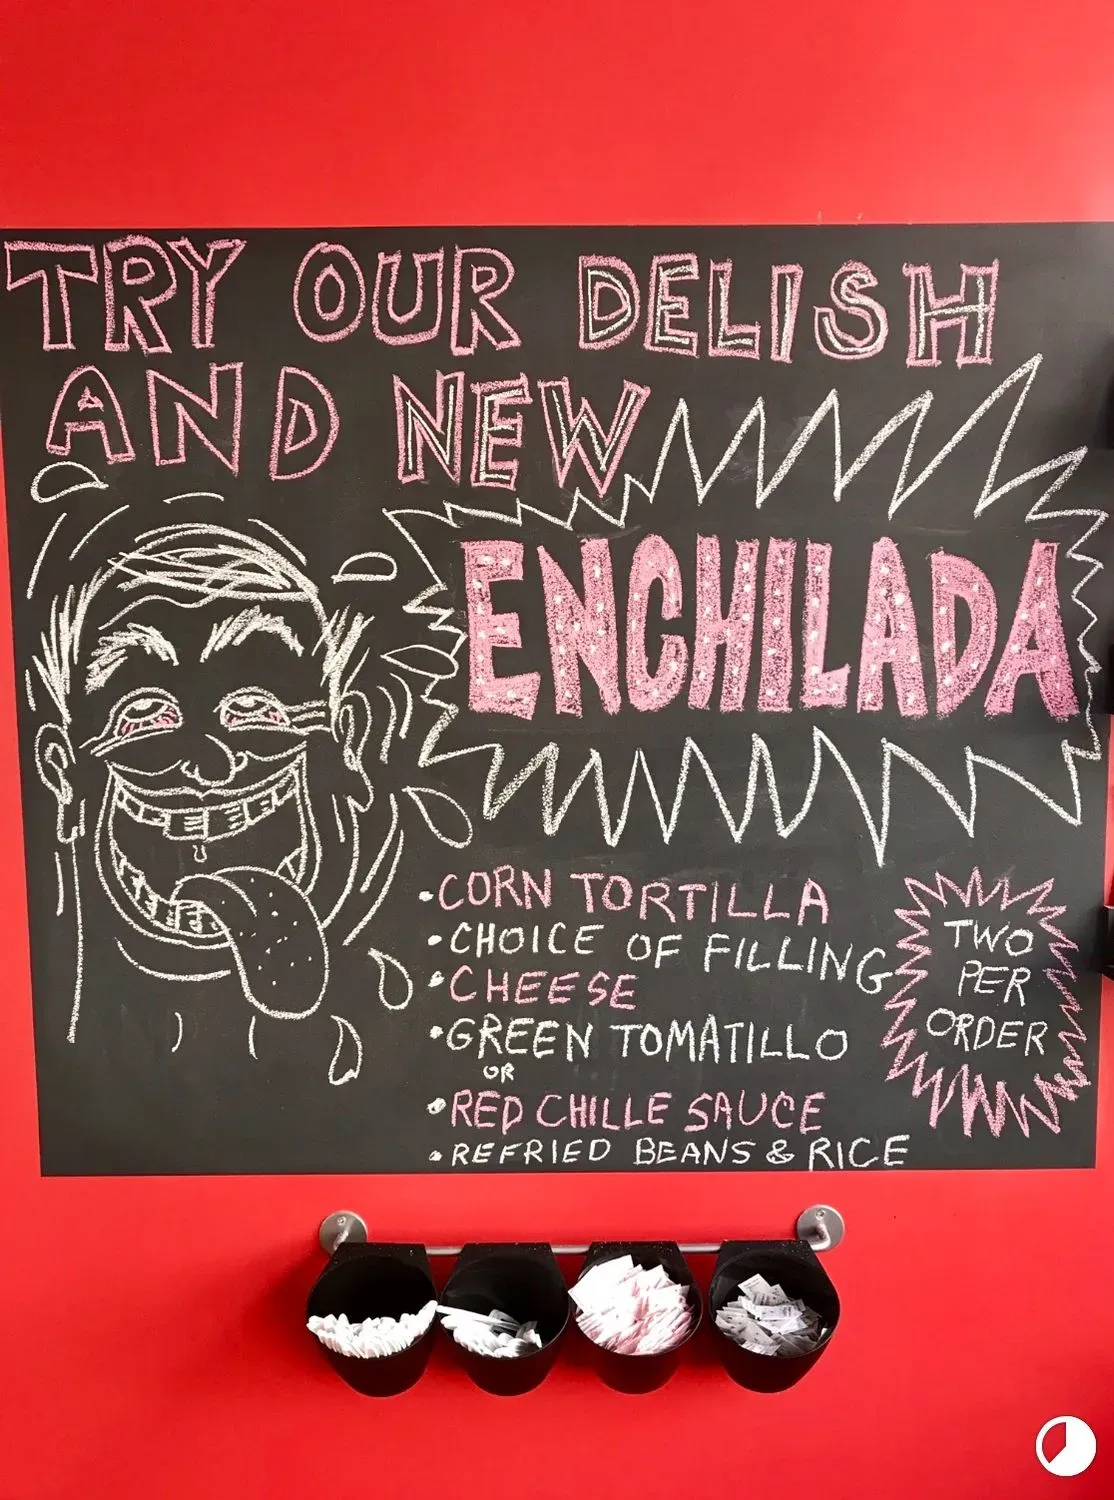 TRY OUR DELISH
AND NEW
ENCHILADA
• CORN TORTILLA
• CHOICE OF FILLING
• CHEESE
• GREEN TOMATILLO
OR
• RED CHILLE SAUCE
• REFRIED BEANS & RICE
TWO
PER
ORDER